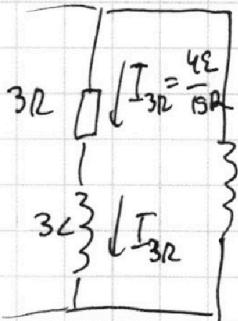 3R I_{3R} = \frac{4ℰ}{15R}
3L I_{3R}